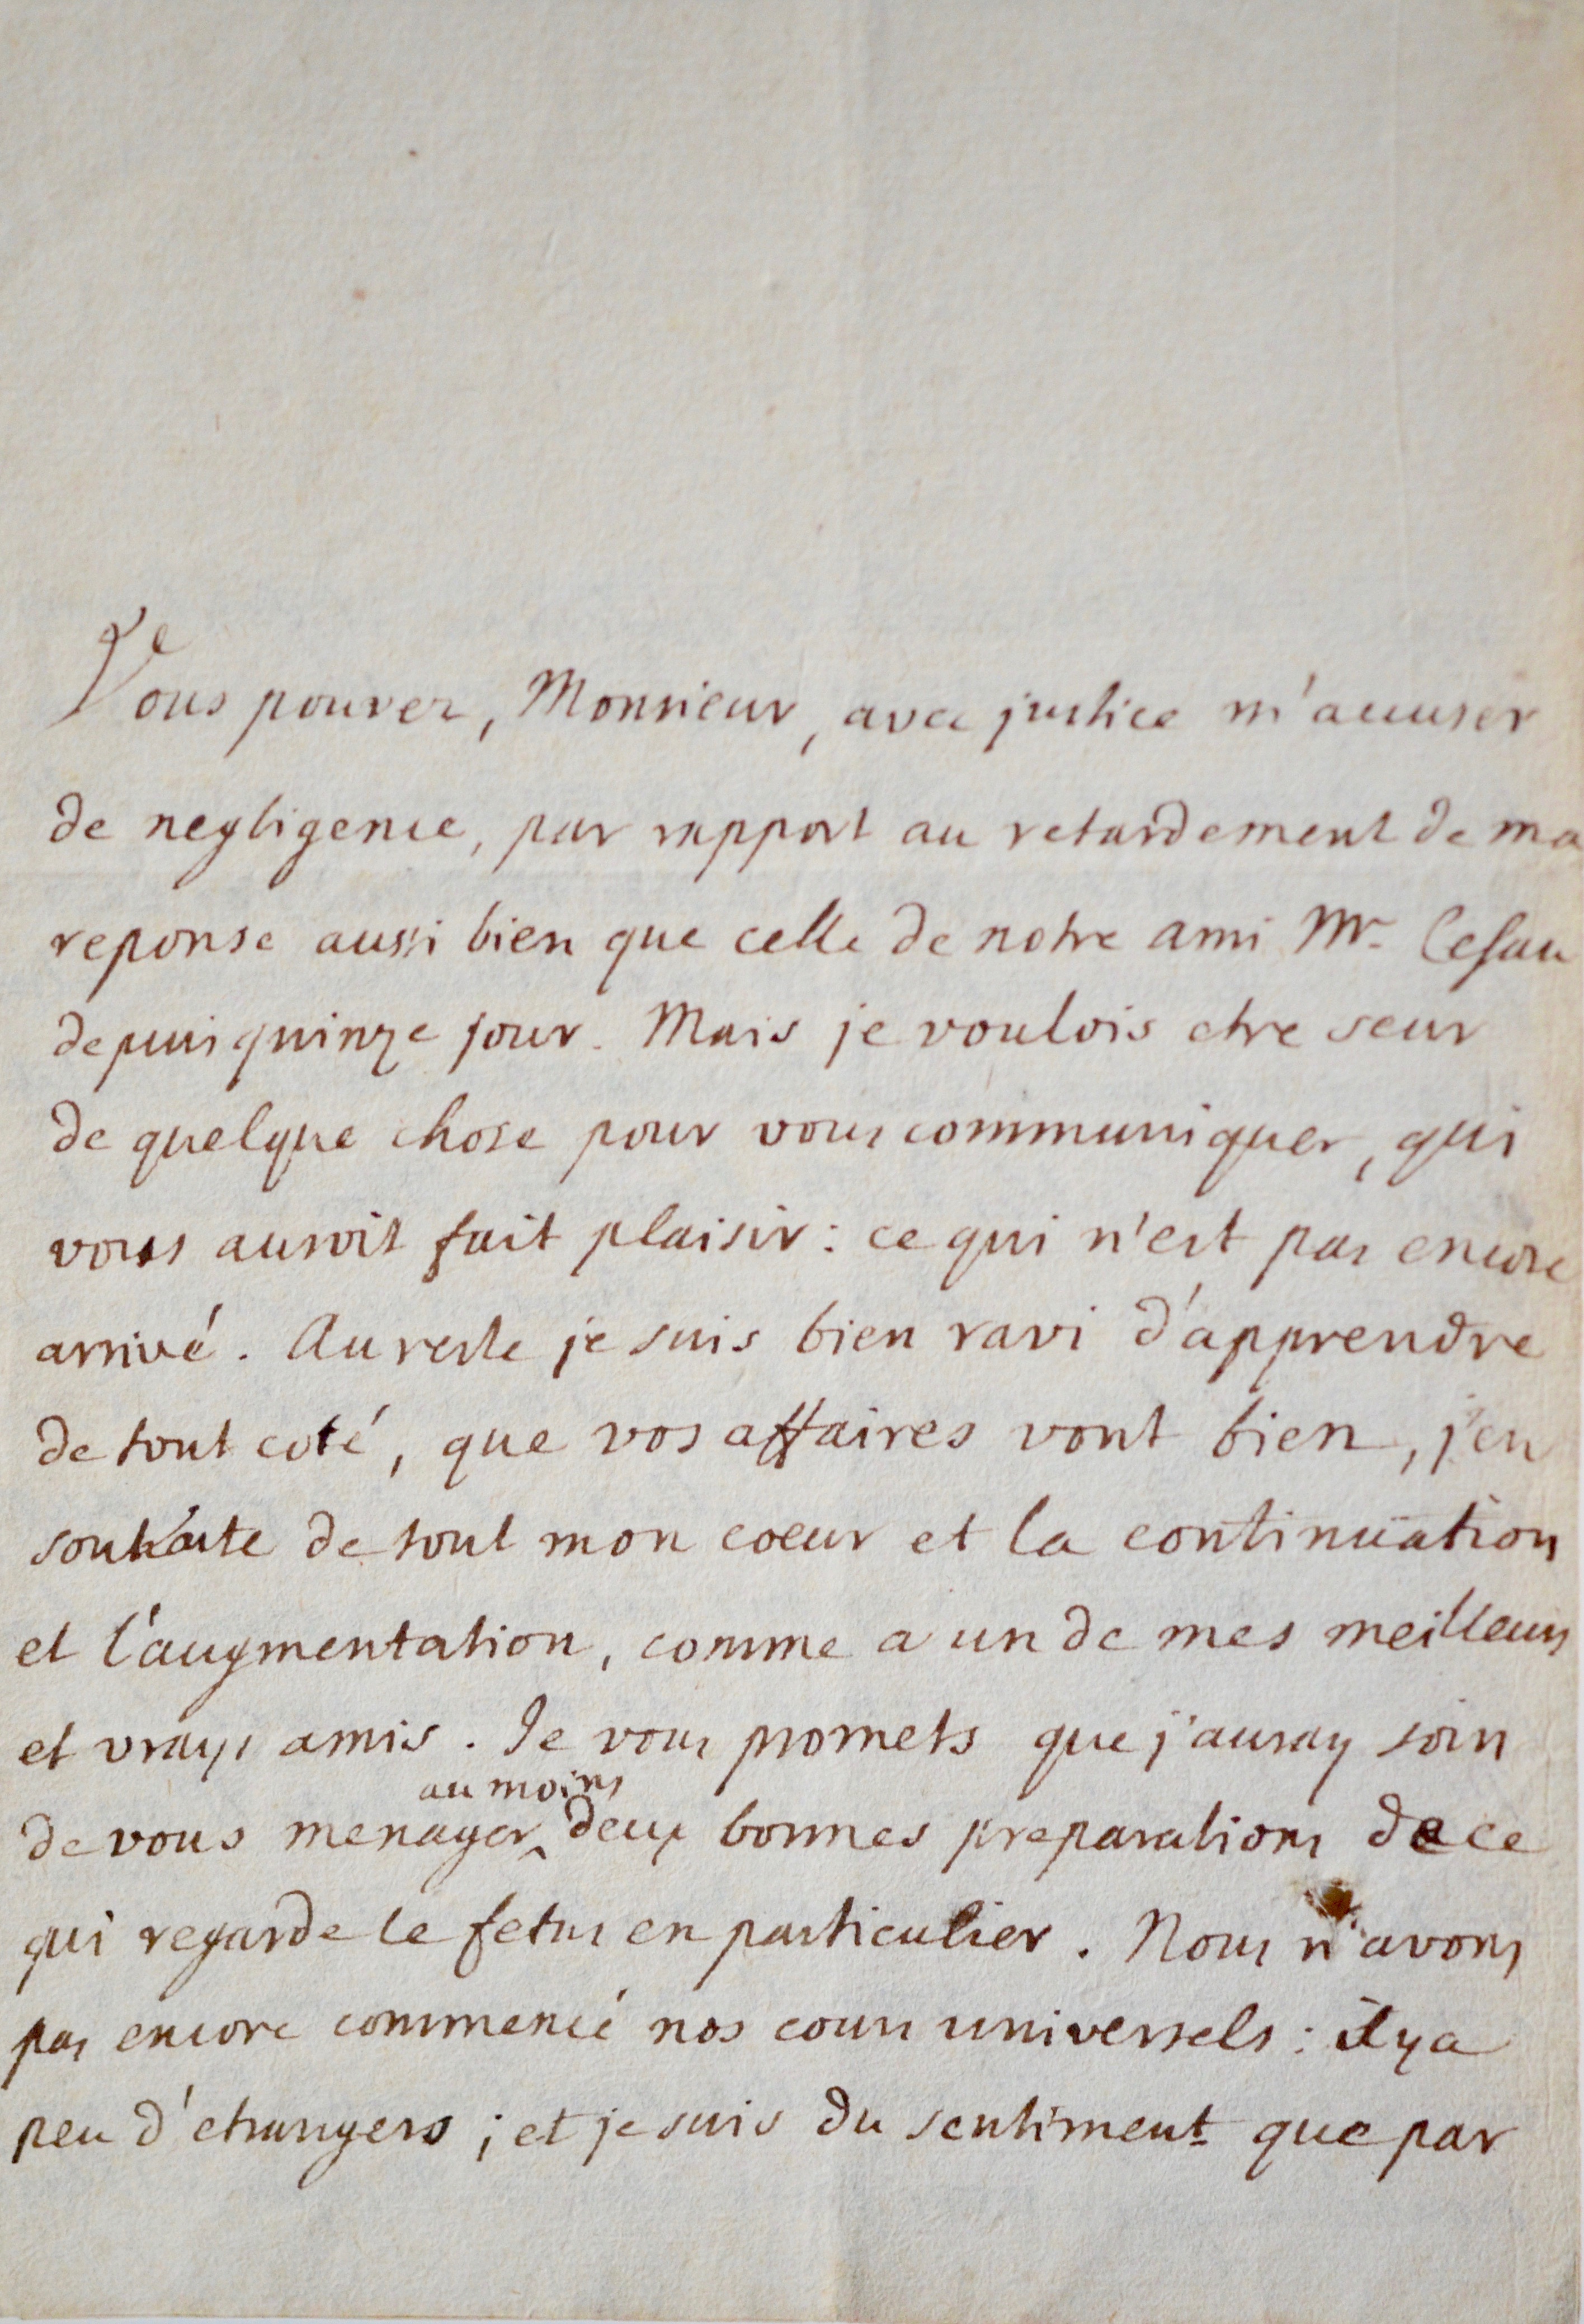 Vous pouvez, Monsieur, avec justice m'accuser
de negligence, par rapport au retardement de ma
reponse aussi bien que celle de notre ami Mr.
depuis quinze jour. Mais je voulois etre seur
de quelque chose pour vous communiquer, qui
vous auroit fait plaisir: ce qui n'est pas encore
arrivé. Au reste je suis bien ravi d'apprendre
de tout coté, que vos affaires vont bien, j'en
souhaite de tout mon coeur et la continüation
et l'augmentation, comme a un de mes meilleurs
et vrays amis. Je vous promets que j'auray soin
au moins
de vous menager ‸ deux bonnes preparations de ce
qui regarde le fetus en particulier. Nous n'avons
pas encore commencé nos cours universels: il y a
peu d'etrangers; et je suis du sentiment que par